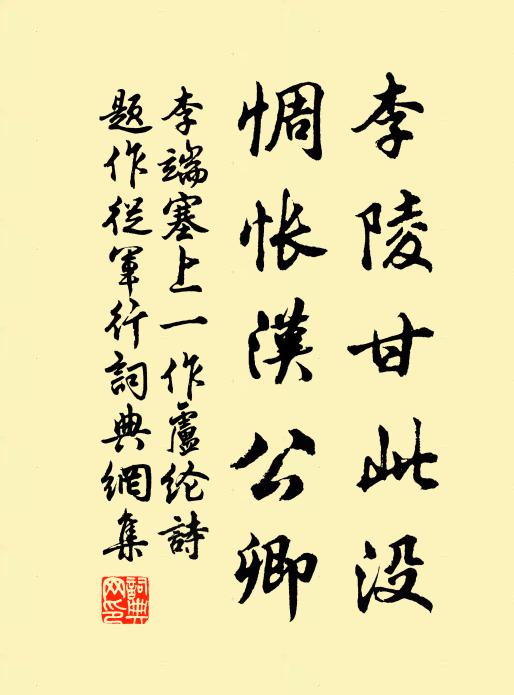 李陵甘此没
惆怅漢公卿
李端塞上一作盧纶詩
題作從軍行詞典網集
詞典网印